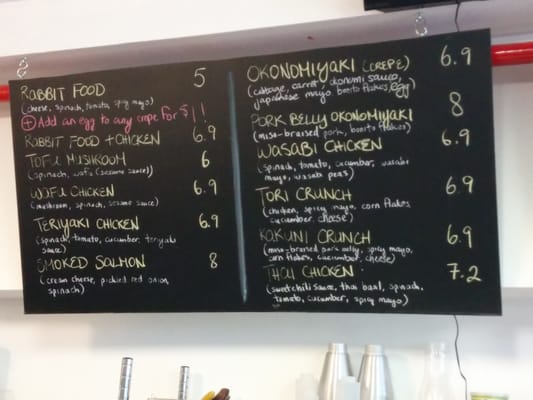 RABBIT FOOD 5
(cheese, spinach, tomato, spicy mayo)
+ Add an egg to any crepe for $1!!
RABBIT FOOD + CHICKEN 6.9
TOFU MUSHROOM 6
(spinach, wafu (sesame sauce))
WAFU CHICKEN 6.9
(mushroom, spinach, sesame sauce)
TERIYAKI CHICKEN 6.9
(spinach, tomato, cucumber, teriyaki
sauce)
SMOKED SALMON 8
(cream cheese, pickled red onion,
spinach)
OKONOMIYAKI (CREPE) 6.9
(cabbage, carrot, okonomi sauce,
japanese mayo, bonito flakes, egg
PORK BELLY OKONOMIYAKI 8
(miso-braised pork, bonito flakes)
WASABI CHICKEN 6.9
(spinach, tomato, cucumber, wasabi
mayo, wasabi peas)
TORI CRUNCH 6.9
(chicken, spicy mayo, corn flakes,
cucumber, cheese)
KAKUNI CRUNCH 6.9
(miso-braised pork belly, spicy mayo,
corn flakes, cucumber, cheese)
THAI CHICKEN 7.2
(sweet chili sauce, thai basil, spinach,
tomato, cucumber, spicy mayo)